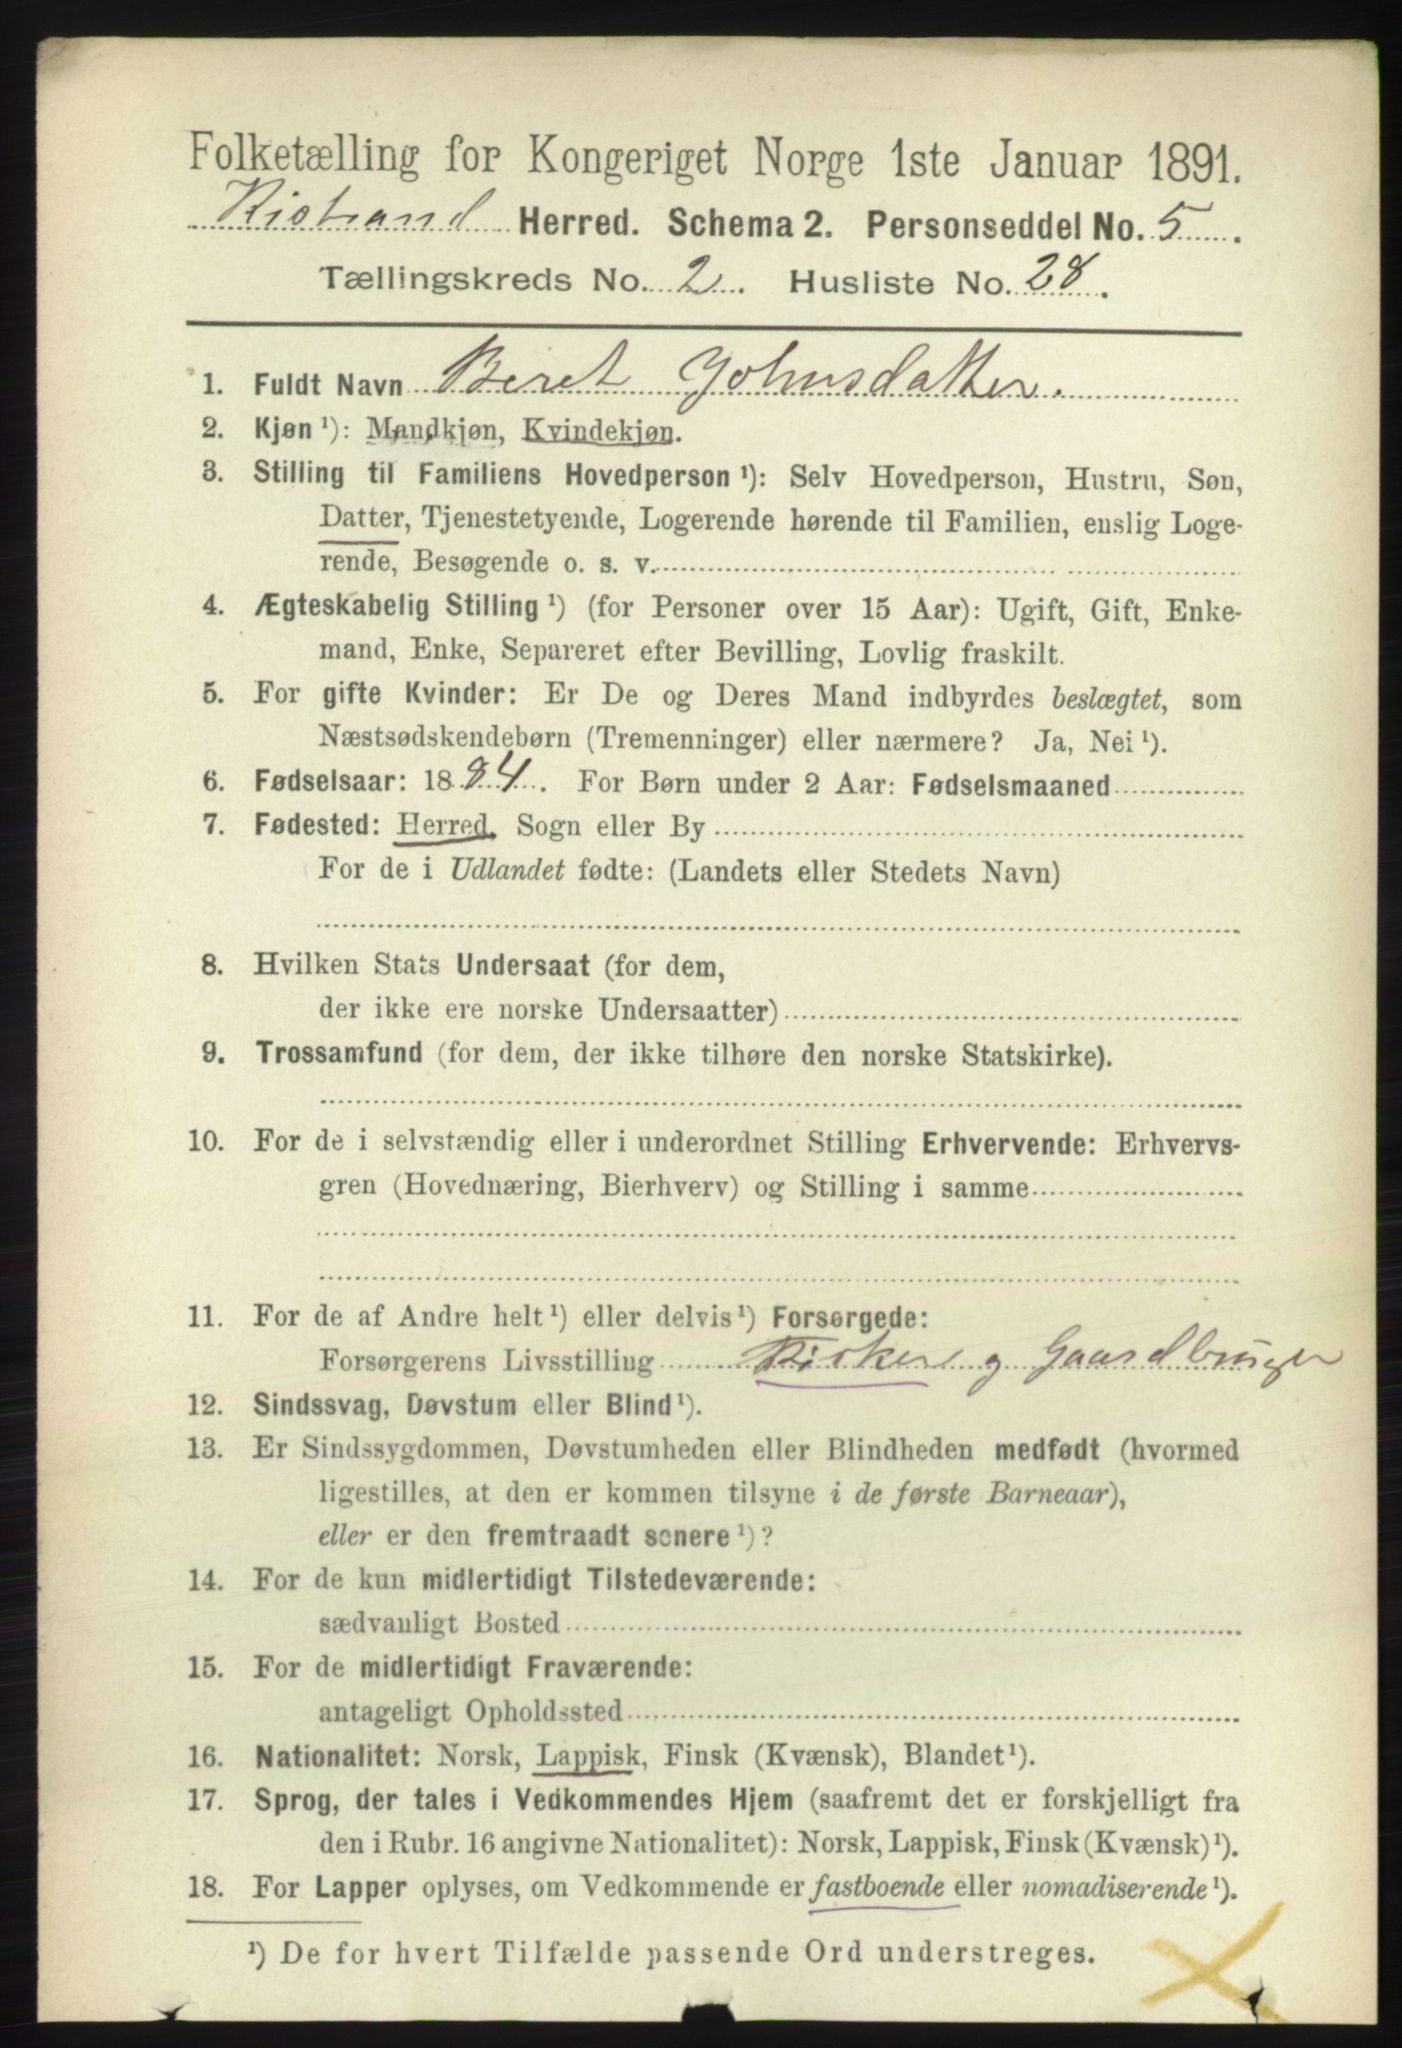 Folketælling for Kongeriget Norge 1ste Januar 1891.
Kistrand Herred. Schema 2. Personseddel No. 5.
Tællingskreds No. 2. Husliste No. 28.
1. Fuldt Navn Beret Johnsdatter.
2. Kjøn ¹): Mandkjøn, Kvindekjøn.
3. Stilling til Familiens Hovedperson ¹): Selv Hovedperson, Hustru, Søn,
Datter, Tjenestetyende, Logerende hørende til Familien, enslig Loge-
rende, Besøgende o. s. v.
4. Ægteskabelig Stilling ¹) (for Personer over 15 Aar): Ugift, Gift, Enke-
mand, Enke, Separeret efter Bevilling, Lovlig fraskilt.
5. For gifte Kvinder: Er De og Deres Mand indbyrdes beslægtet, som
Næstsødskendebørn (Tremenninger) eller nærmere? Ja, Nei ¹).
6. Fødselsaar: 1884. For Børn under 2 Aar: Fødselsmaaned
7. Fødested: Herred, Sogn eller By
For de i Udlandet fødte: (Landets eller Stedets Navn)
8. Hvilken Stats Undersaat (for dem,
der ikke ere norske Undersaatter)
9. Trossamfund (for dem, der ikke tilhøre den norske Statskirke).
10. For de i selvstændig eller i underordnet Stilling Erhvervende: Erhvervs-
gren (Hovednæring, Bierhverv) og Stilling i samme
11. For de af Andre helt ¹) eller delvis ¹) Forsørgede:
Forsørgerens Livsstilling Fisker og Gaardbruger
12. Sindssvag, Døvstum eller Blind ¹).
13. Er Sindssygdommen, Døvstumheden eller Blindheden medfødt (hvormed
ligestilles, at den er kommen tilsyne i de første Barneaar),
eller er den fremtraadt senere ¹)?
14. For de kun midlertidigt Tilstedeværende:
sædvanligt Bosted
15. For de midlertidigt Fraværende:
antageligt Opholdssted
16. Nationalitet: Norsk, Lappisk, Finsk (Kvænsk), Blandet ¹).
17. Sprog, der tales i Vedkommendes Hjem (saafremt det er forskjelligt fra
den i Rubr. 16 angivne Nationalitet): Norsk, Lappisk, Finsk (Kvænsk) ¹).
18. For Lapper oplyses, om Vedkommende er fastboende eller nomadiserende ¹).
¹) De for hvert Tilfælde passende Ord understreges.